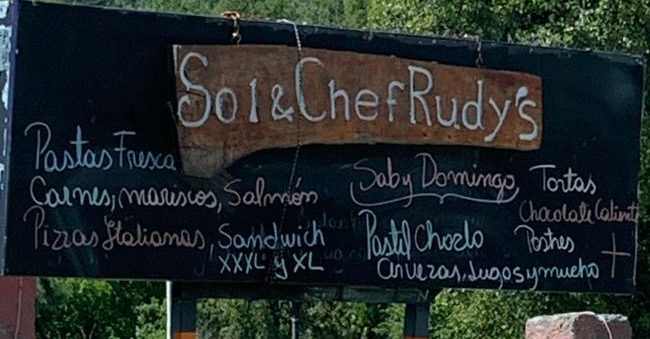 Sol & Chef Rudy's
Pastas Fresca
Carnes, mariscos, Salmón
Pizzas Italianas, Sandwich
XXXL y XL
Sab y Domingo
Pastel Choclo
Cervezas, Jugos y mucho +
Tortas
Chocolate Caliente
Postres